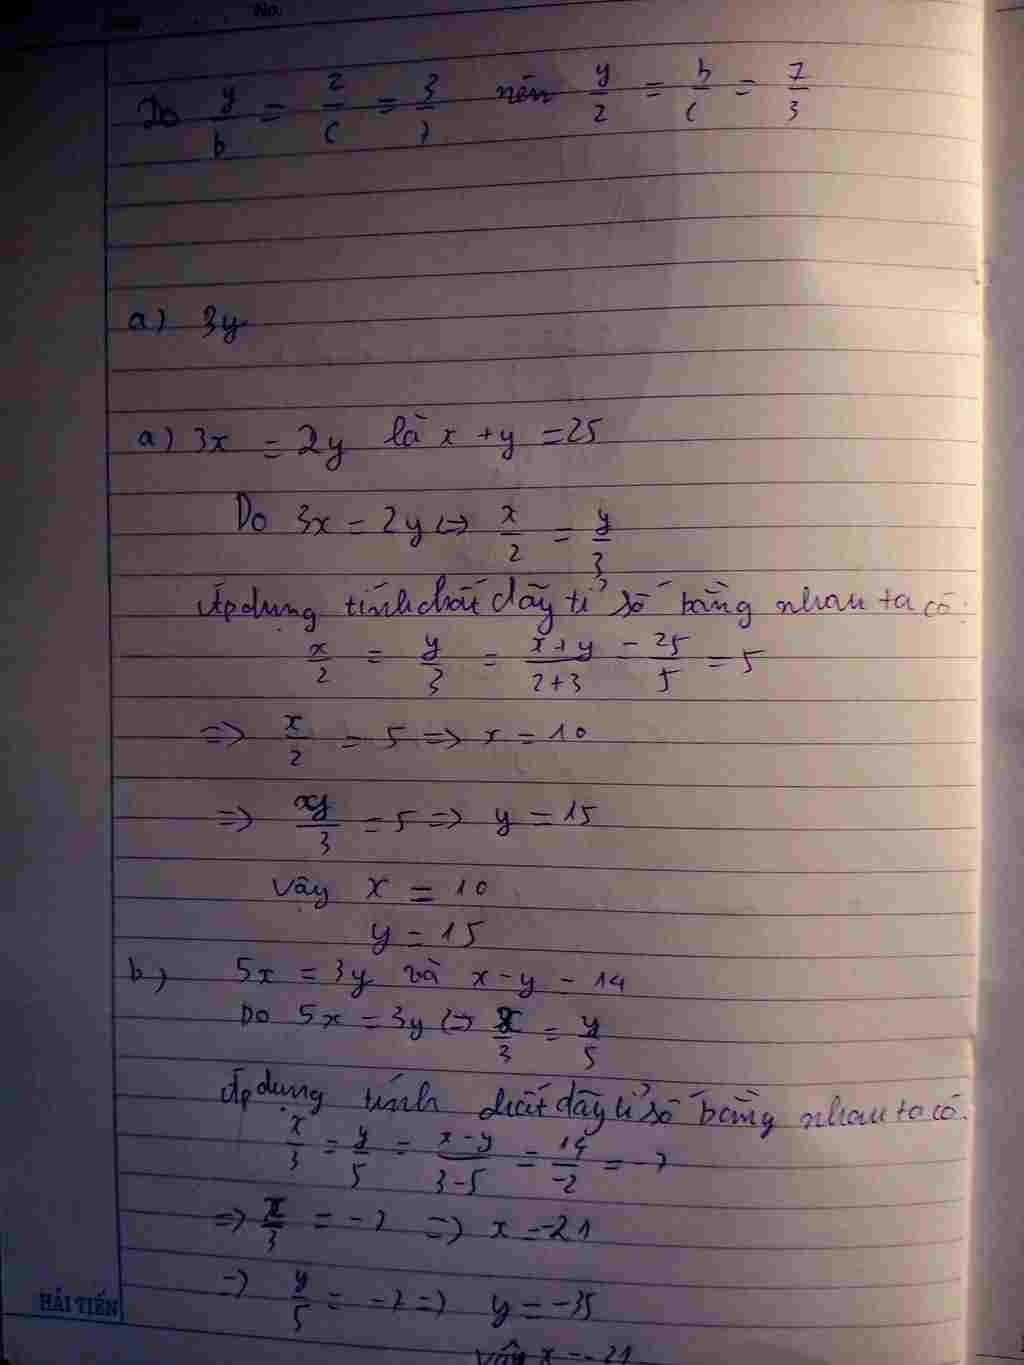 No.
Do y/b = z/c = 3/7 nên y/z = b/c = 7/3
a) 3y
a) 3x = 2y là x + y = 25
Do 3x = 2y <=> x/2 = y/3
Áp dụng tính chất dãy tỉ số bằng nhau ta có:
x/2 = y/3 = x+y/2+3 = 25/5 = 5
=> x/2 = 5 => x = 10
=> y/3 = 5 => y = 15
Vậy x = 10
y = 15
b) 5x = 3y và x - y = 14
Do 5x = 3y <=> x/3 = y/5
Áp dụng tính chất dãy tỉ số bằng nhau ta có.
x/3 = y/5 = x-y/3-5 = 14/-2 = -7
=> x/3 = -7 => x = -21
=> y/5 = -7 => y = -35
HẢI TIẾN
Vậy x = -21